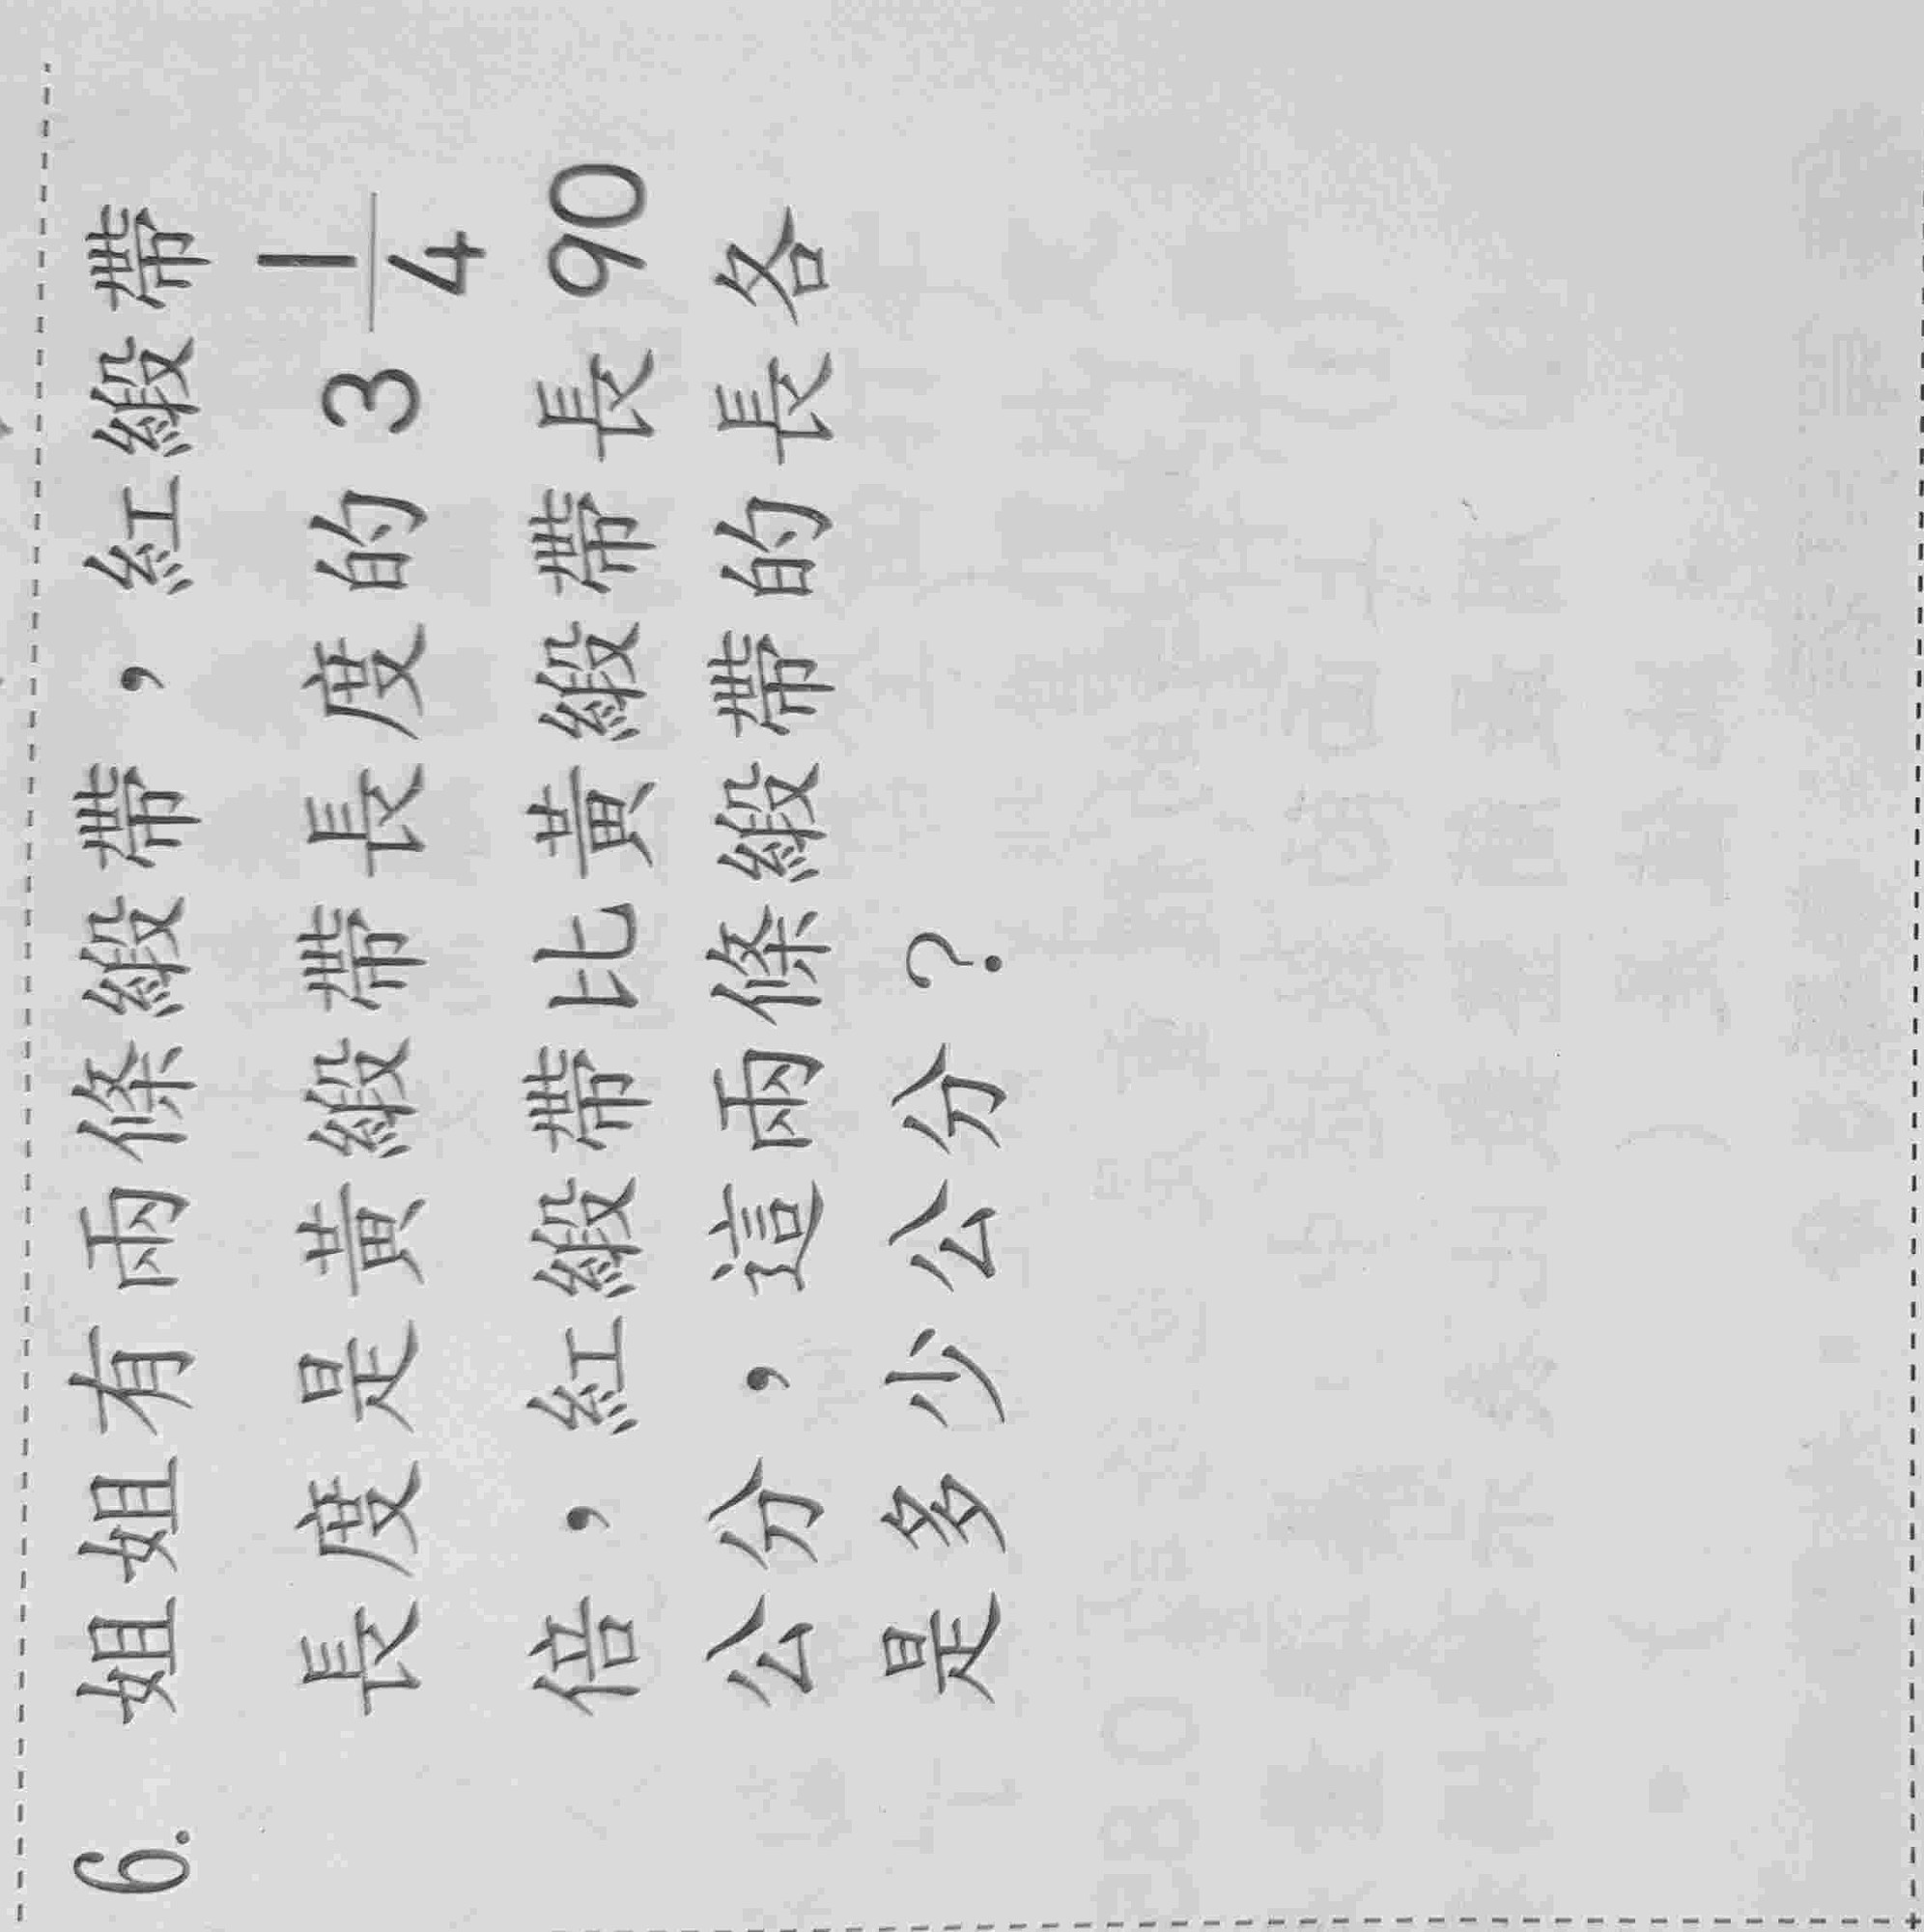 6. 姐姐有兩條緞帶，紅緞帶
長度是黃緞帶長度的3 1/4
倍，紅緞帶比黃緞帶長90
公分，這兩條緞帶的長各
是多少公分？